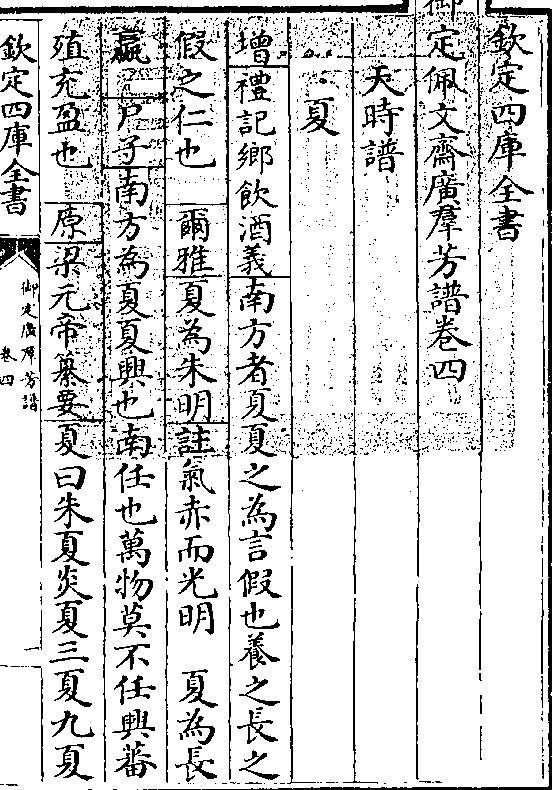 欽定四庫全書
御定佩文齋廣羣芳譜卷四
天時譜
夏
增禮記鄉飲酒義南方者夏夏之為言假也養之長之
假之仁也　爾雅夏為朱明註氣赤而光明　夏為長
嬴　尸子南方為夏夏興也南任也萬物莫不任興蕃
殖充盈也　原梁元帝纂要夏曰朱夏炎夏三夏九夏
欽定四庫全書
御定廣羣芳譜
卷四